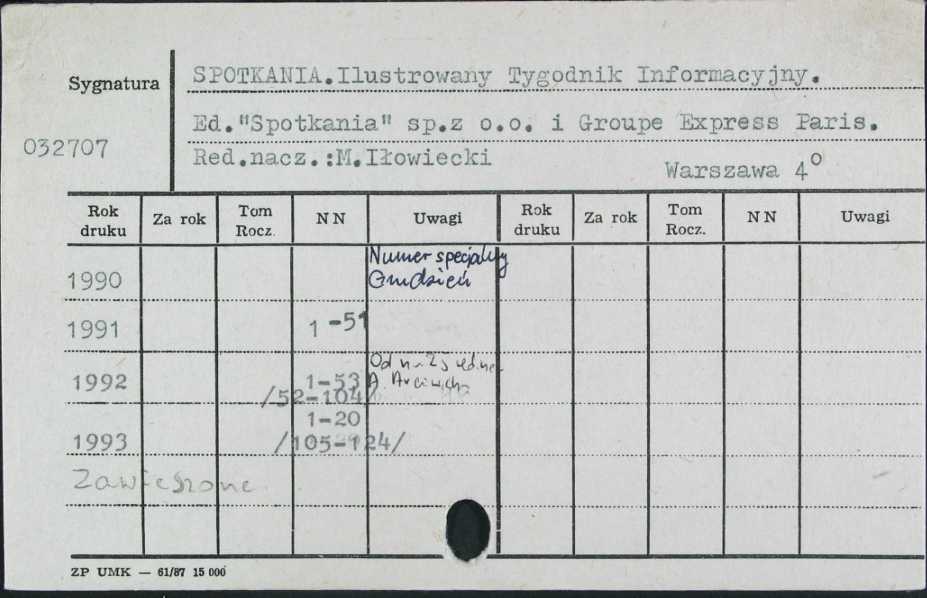 Sygnatura
SPOTKANIA.Ilustrowany Tygodnik Informacyjny.
Ed."Spotkania" sp.z o.o. i Groupe Express Paris.
032707
Red.nacz.:M.Iłowiecki
Warszawa 4°
Rok druku Za rok Tom Rocz. NN Uwagi Rok druku Za rok Tom Rocz. NN Uwagi
Numer specjalny
1990 Grudzień
1991 1-51
Od
1992 1-53 A.
/52-104/
1-20
1993 /105-124/
Zawieszone
ZP UMK — 61/87 15 000